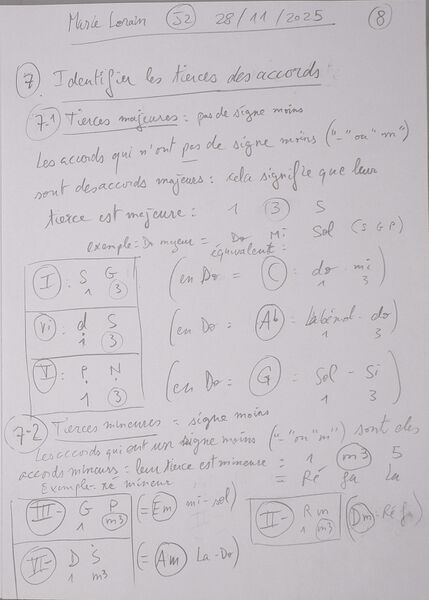 Marie Lorain (J2) 28/11/2025 (8)
(7) Identifier les tierces des accords
(7.1) Tierces majeures : pas de signe moins
Les accords qui n'ont pas de signe moins ("-" ou "m")
sont des accords majeurs : cela signifie que leur
tierce est majeure : 1 (3) 5
exemple: Do majeur = Do Mi Sol (S G P)
équivalent :
(I) : S G (en Do = (C) : do - mi)
1 (3) 1 3
(VI) : d S (en Do = (Ab) : Labémol - do)
1 (3) 1 3
(V) : P N (en Do = (G) = Sol - Si)
1 (3) 1 3
(7-2) Tierces mineures = signe moins
Les accords qui ont un signe moins ("-" ou "m") sont des
accords mineurs : leur tierce est mineure : 1 (m3) 5
Exemple: ré mineur = Ré fa La
(III-) G P (= (Em) mi-sol)
1 (m3)
(II-) R m ((Dm) = Ré fa)
1 (m3)
(VI-) D S (= (Am) La-Do)
1 m3